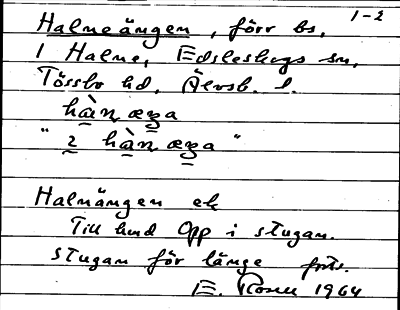 1-2
Halmeängen, förr bs,
1 Halme, Edsleskogs sn,
Tössbo hd, Älvsb. l.
hàn æŋa
" 2 hàn æŋa "
Halmängen ek
Till hmd Opp i stugan.
Stugan för länge forts.
E. Rosell 1964